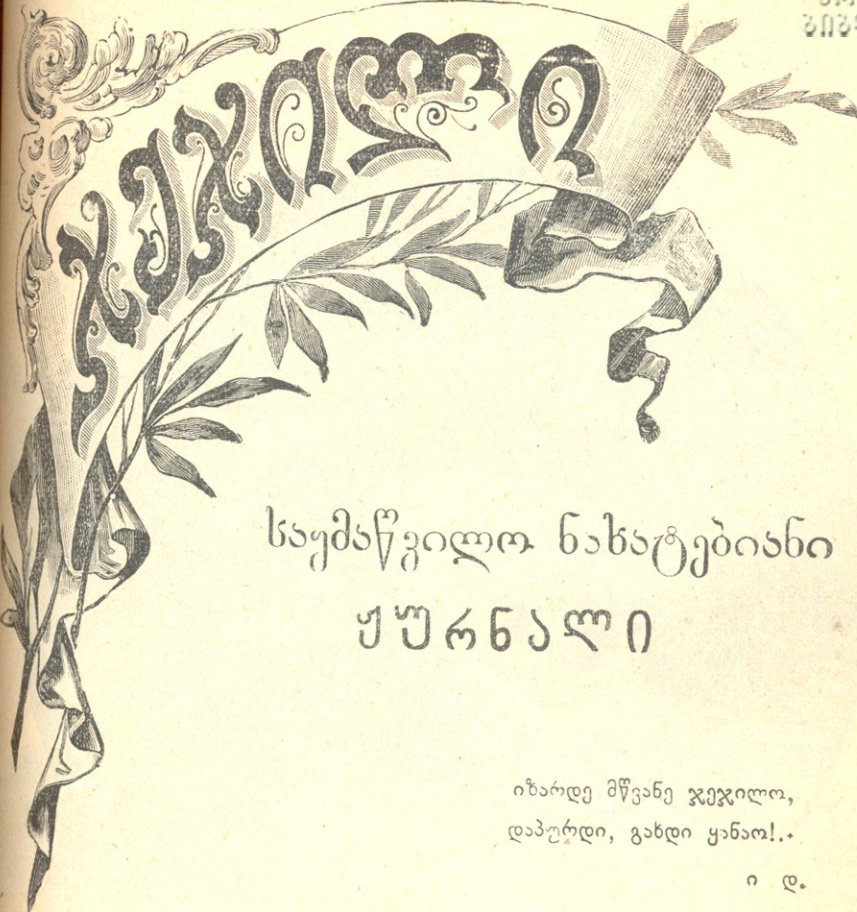 ჯეჯილი
საყმაწვილო ნახატებიანი
ჟურნალი
იზარდე მწვანე ჯეჯილო,
დაპურდი, გახდი ყანაო!..
ი დ.